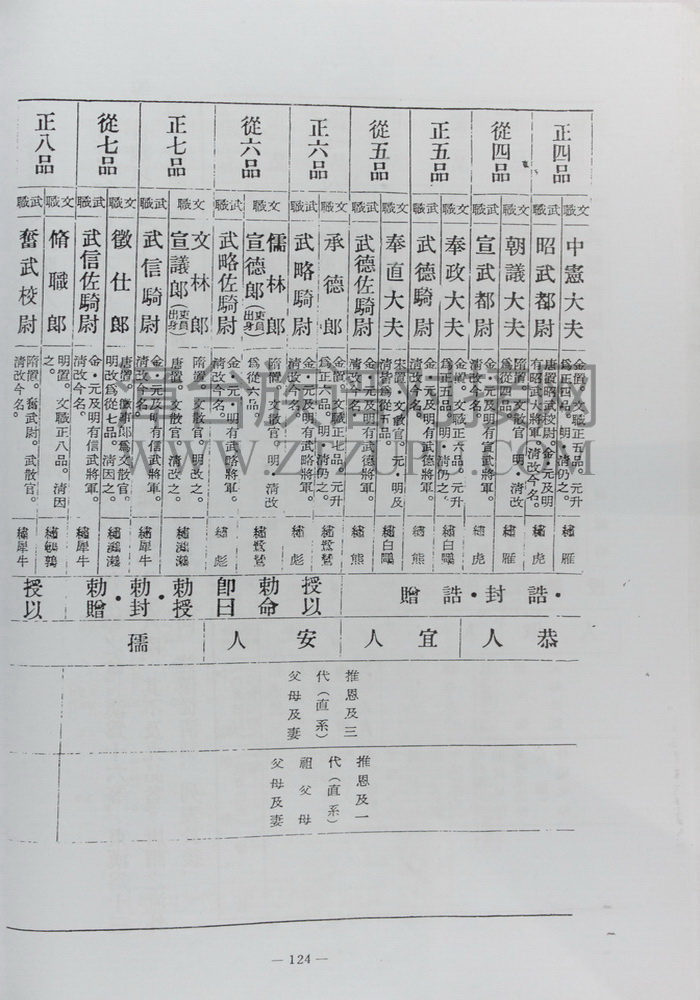 正四品
從四品
正五品
從五品
正六品
從六品
正七品
從七品
正八品
文職
武職
文職
武職
文職
武職
文職
武職
文職
武職
文職
武職
文職
武職
文職
武職
文職
武職
中憲大夫
昭武都尉
朝議大夫
宣武都尉
奉政大夫
武德騎尉
奉直大夫
武德佐騎尉
承德郎
武略騎尉
儒林郎
宣德郎(吏員出身)
武略佐騎尉
文林郎
宣議郎(吏員出身)
武信騎尉
徵仕郎
武信佐騎尉
脩職郎
奮武校尉
金置。文職正五品。元升
爲正四品。明・清仍之。
唐置昭武校尉。金・元及明
有昭武大將軍。清改今名。
隋置。文散官。明・清改
爲從四品。
金・元及明有宣武將軍。
清改今名。
金置。文職正六品。元升
爲正五品。明・清仍之。
金・元及明有武德將軍。
清改今名。
宋置。文散官。元・明及
清皆爲從五品。
金・元及明有武德將軍。
清改今名。
金置。文職正七品。元升
爲正六品。明・清仍之。
金・元及明有武略將軍。
清改今名。
隋置。文散官。明・清改
爲從六品。
金・元及明有武略將軍。
清改今名。
隋置。文散官。明改之。
唐置。文散官。清改之。
金・元及明有信武將軍。
清改今名。
唐置。徵事郎爲文散官。
明改爲從七品。清因之。
金・元及明有信武將軍。
清改今名。
明置。文職正八品。清因
之。
隋置。奮武尉。武散官。
清改今名。
繡雁
繡虎
繡雁
繡虎
繡白鷴
繡熊
繡白鷴
繡熊
繡鷺鷥
繡彪
繡鷺鷥
繡彪
繡鸂鶒
繡犀牛
繡鸂鶒
繡犀牛
繡鵪鶉
繡犀牛
・誥封・誥贈
授以勅命卽曰勅授・勅封・勅贈
授以
恭人
宜人
安人
孺
推恩及三
代(直系)
父母及妻
推恩及一
代(直系)
祖父母
父母及妻
— 124 —
WWW.ZTZUPU.COM